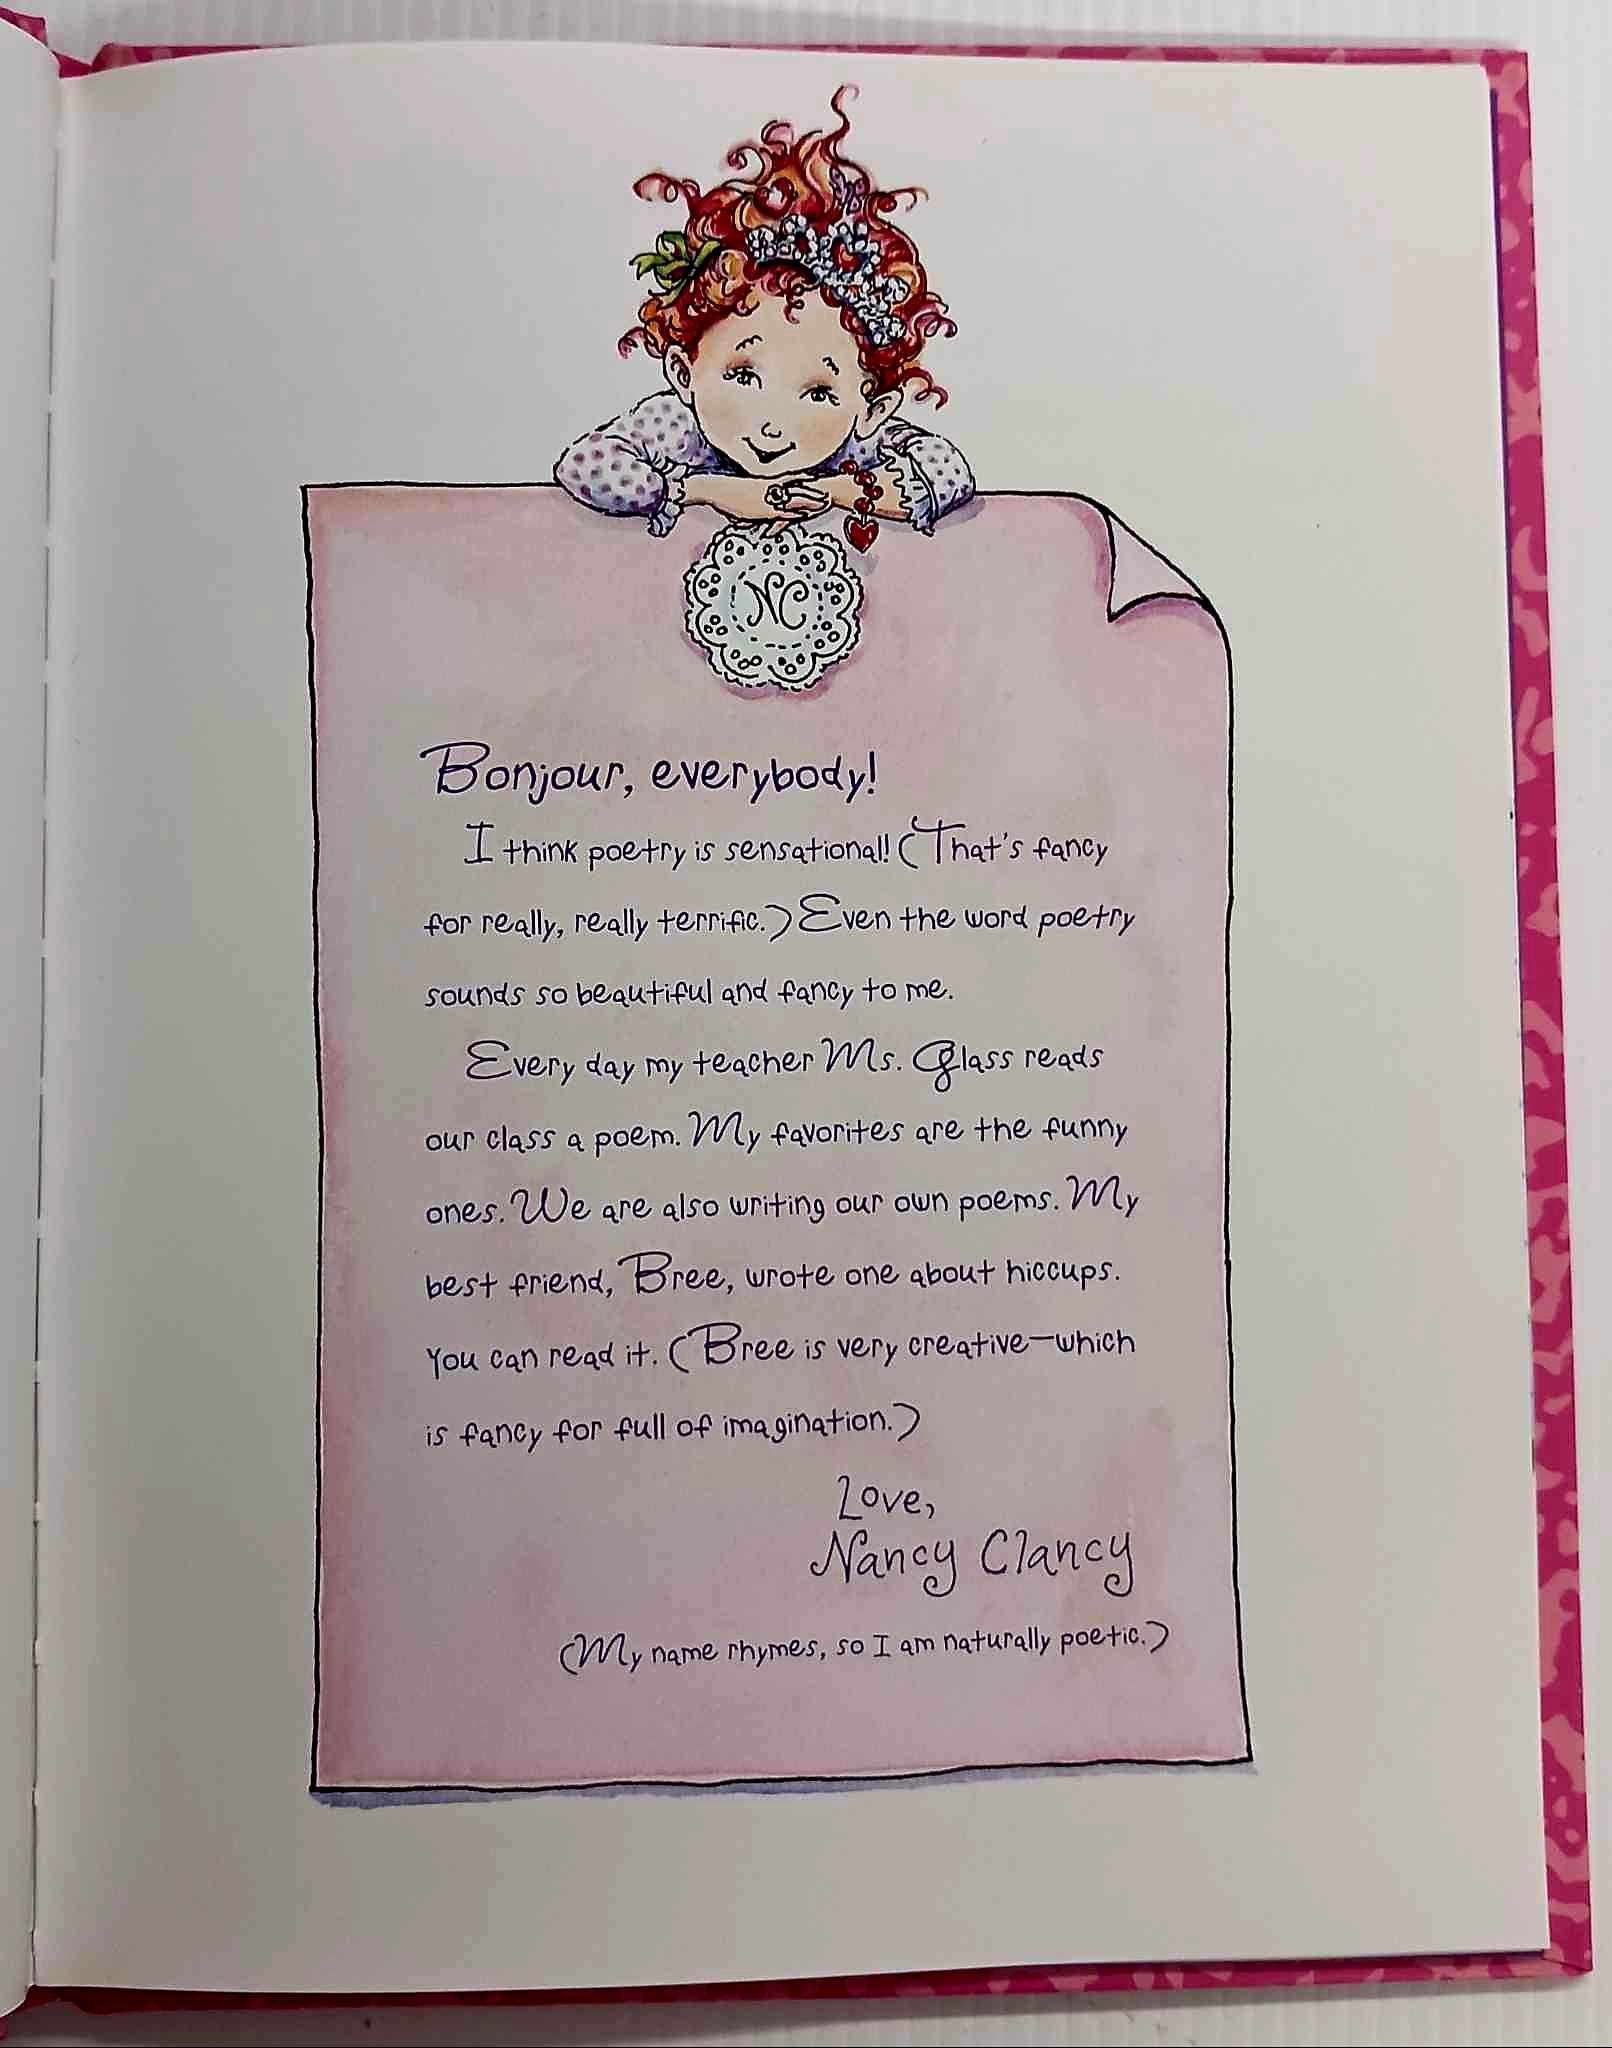 NC
Bonjour, everybody!
I think poetry is sensational! (That's fancy
for really, really terrific.) Even the word poetry
sounds so beautiful and fancy to me.
Every day my teacher Ms. Glass reads
our class a poem. My favorites are the funny
ones. We are also writing our own poems. My
best friend, Bree, wrote one about hiccups.
You can read it. (Bree is very creative—which
is fancy for full of imagination.)
Love,
Nancy Clancy
(My name rhymes, so I am naturally poetic.)